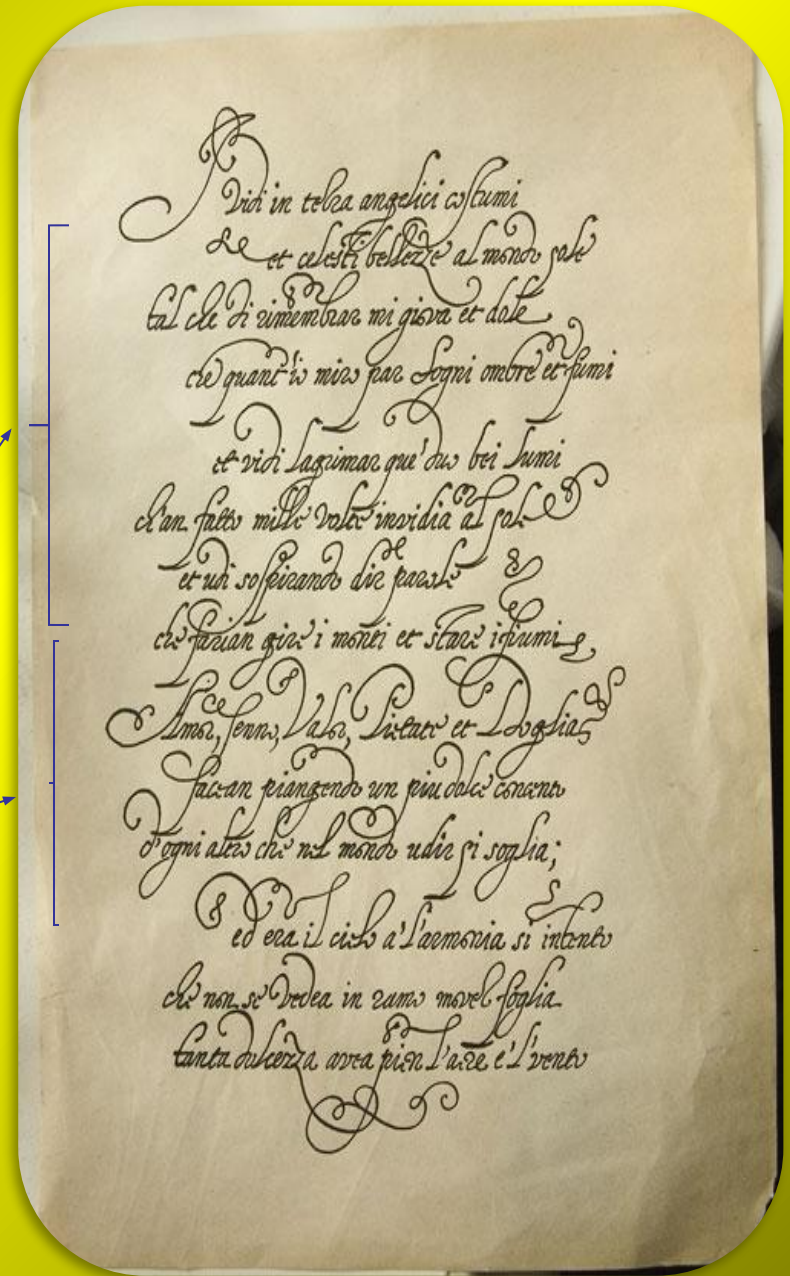 I vidi in terra angelici costumi
et celesti bellezze al mondo sole
tal che di rimembrar mi giova et dole
che quant'io miro par sogni ombre et fumi
et vidi lagrimar que' duo bei lumi
ch'an fatto mille volte invidia al sole
et udi sospirando dir parole
che farian gire i monti et stare i fiumi
Amor, Senno, Valor, Pietate et Doglia
facean piangendo un piu dolce concento
d'ogni altro che nel mondo udir si soglia;
ed era il cielo a l'armonia si intento
che non se vedea in ramo mover foglia
tanta dolcezza avea pien l'aere e 'l vento